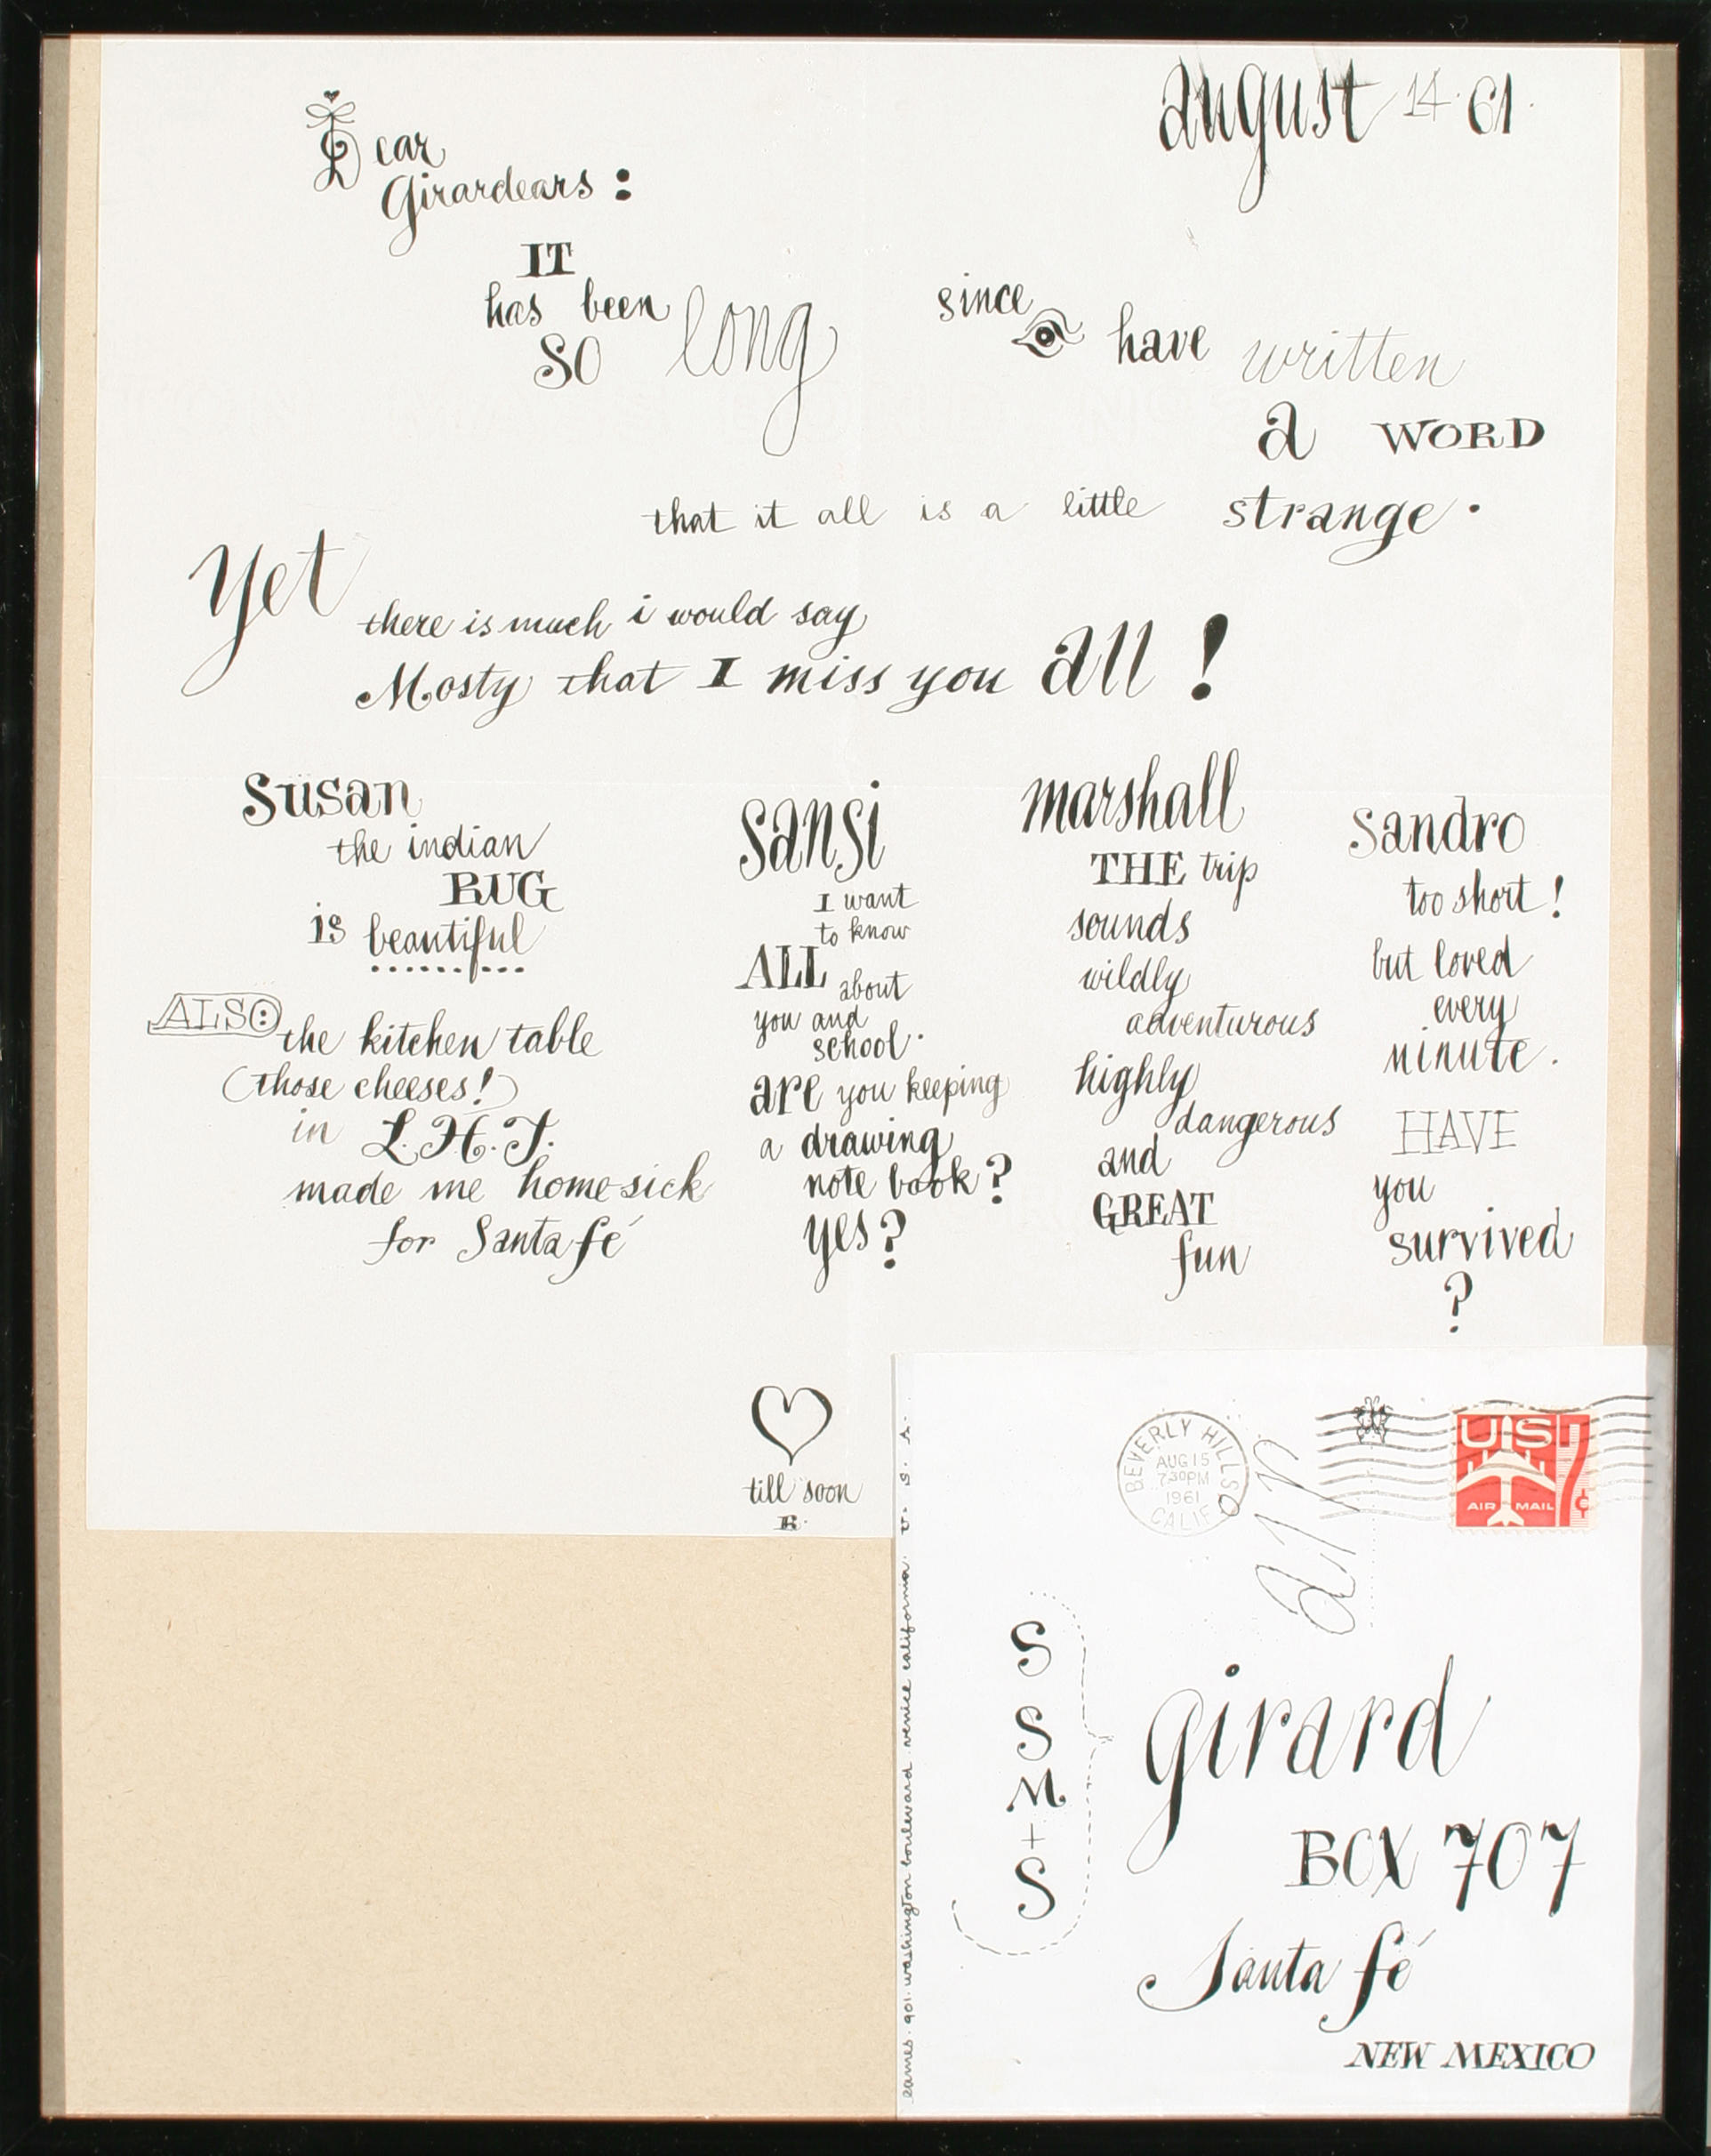 august 14. 61.
Dear
Girardears :
IT
has been
SO long
since
have written
a WORD
that it all is a little strange.
yet
there is much i would say
Mosty that I miss you all !
Susan
the indian
RUG
is beautiful
ALSO:
the kitchen table
(those cheeses!)
in L.H.J.
made me home-sick
for Santa fé
Sansi
I want
to know
ALL about
you and
school..
are you keeping
a drawing
note book?
yes?
marshall
THE trip
sounds
wildly
adventurous
highly
dangerous
and
GREAT
fun
Sandro
too short!
but loved
every
minute.
HAVE
you
survived
?
till soon
R.
eames. 901. washington boulevard. venice california. U. S. A.
BEVERLY HILLS
AUG 15
7 30 PM
1961
CALIF
air
U S
7¢
AIR MAIL
S
S
M
+
S
girard
BOX 707
Santa fé
NEW MEXICO